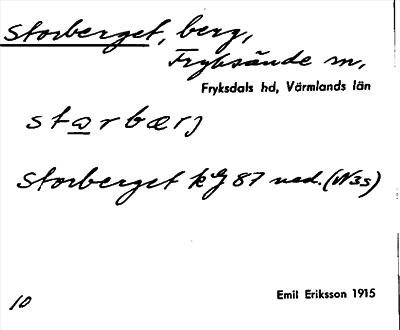 Storberget, berg,
Fryksände sn,
Fryksdals hd, Värmlands län
starbærj
Storberget kg 87 ned. (N3s)
Emil Eriksson 1915
10